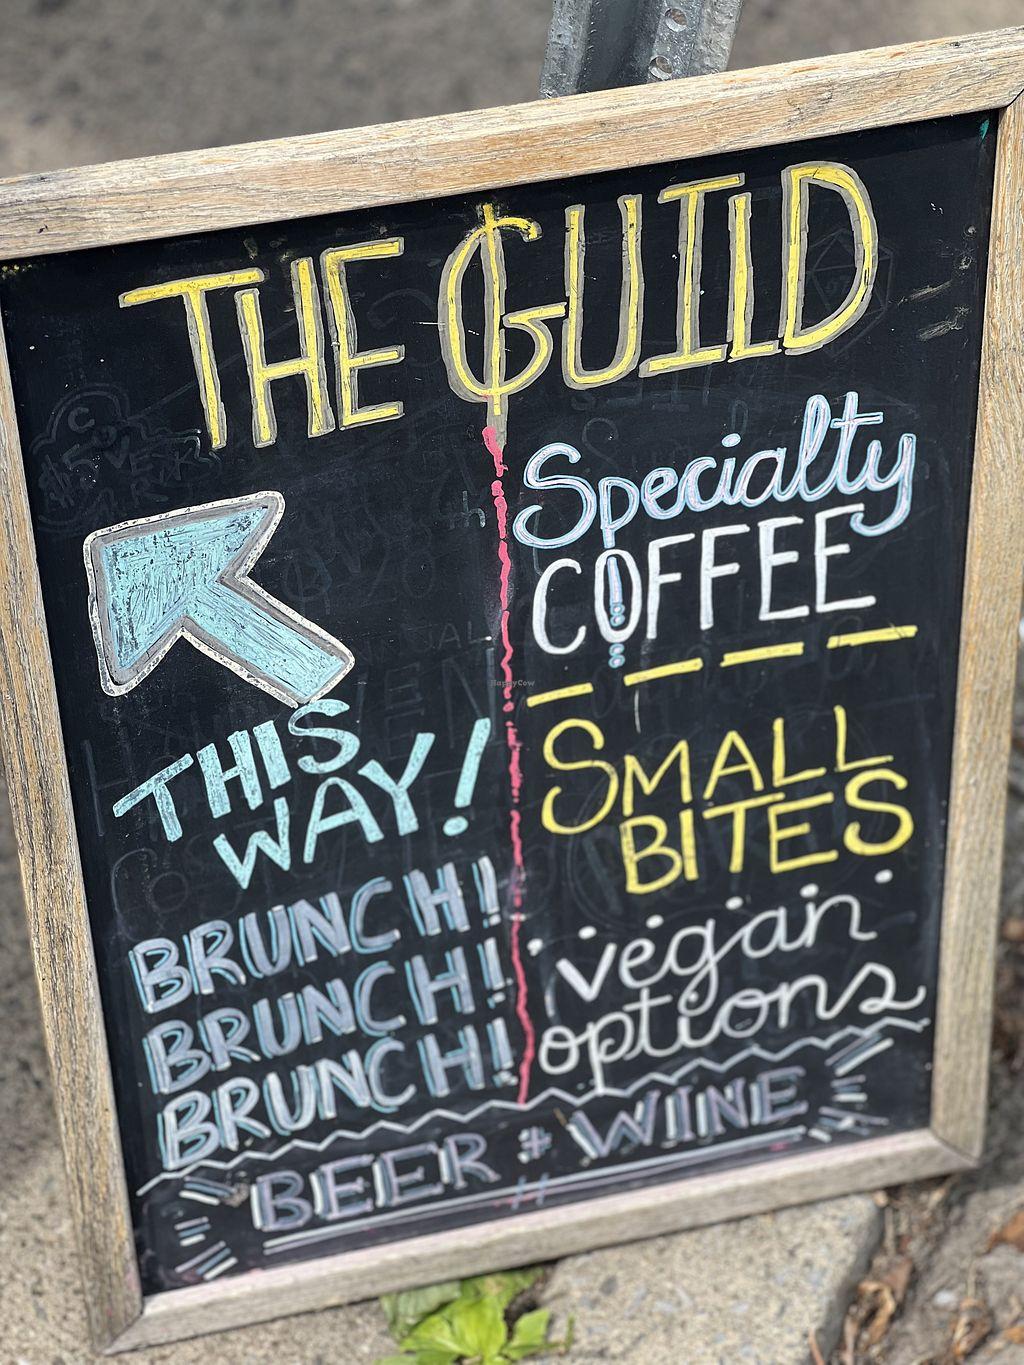 THE GUILD
THIS
WAY!
BRUNCH!
BRUNCH!
BRUNCH!
Specialty
COFFEE
SMALL
BITES
vegan
options
BEER + WINE
HappyCow